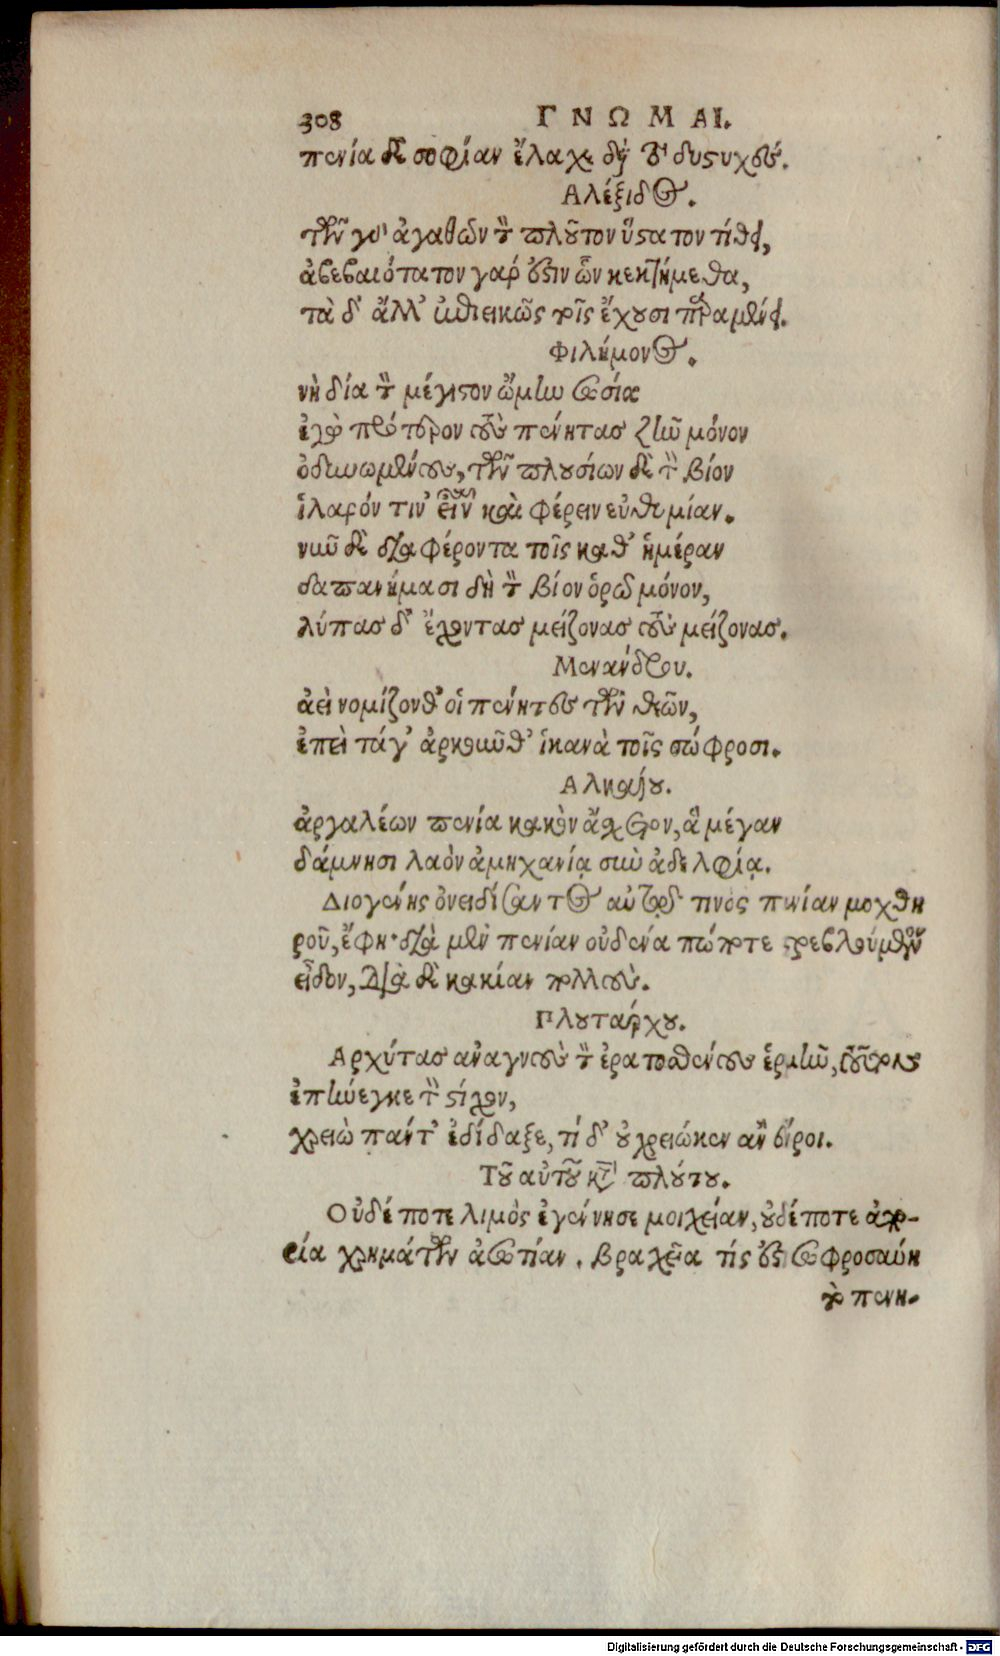 308 ΓΝΩΜΑΙ.
πενία δὲ σοφίαν ἔλαχε διὰ τὸ δυστυχές.
Αλέξιδος.
τῶν γὰρ ἀγαθῶν τὸν πλοῦτον ὕστατον τίθει,
ἀβεβαιότατον γάρ ἐστιν ὧν κεκτήμεθα,
τὰ δ' ἄλλ' ἐπιεικῶς τοῖς ἔχουσι παραμένει.
Φιλήμονος.
νὴ δία τὸν μέγιστον ᾤμην οὐσία
ἐγὼ πρότερον τοὺς πένητας ζῆν μόνον
ὀδυνωμένους, τῶν πλουσίων δὲ τὸν βίον
ἱλαρόν τιν' εἶναι καὶ φέρειν εὐθυμίαν.
νῦν δὲ διαφέροντα τοῖς καθ' ἡμέραν
δαπανήμασι δὴ τὸν βίον ὁρῶ μόνον,
λύπας δ' ἔχοντας μείζονας τοὺς μείζονας.
Μενάνδρου.
ἀεὶ νομίζονθ' οἱ πένητες τῶν θεῶν,
ἐπεὶ τά γ' ἀρκοῦνθ' ἱκανὰ τοῖς σώφροσι.
Αλκαίου.
ἀργαλέων πενία κακὸν ἄσχετον, ἃ μέγαν
δάμνησι λαὸν ἀμηχανίᾳ σὺν ἀδελφίᾳ.
Διογένης ὀνειδίσαντος αὐτῷ τινὸς πενίαν μοχθη
ροῦ, ἔφη· διὰ μὲν πενίαν οὐδένα πώποτε στρεβλούμενον
εἶδον, διὰ δὲ κακίαν πολλούς.
Πλουτάρχου.
Αρχύτας ἀναγνοὺς τὸν ἐρατοσθένους ἑρμῆν,
ἐπήνεγκε τὸν στίχον,
χρειὼ πάντ' ἐδίδαξε, τί δ' οὐ χρειώ κεν ἀνεύροι.
Τοῦ αὐτοῦ κατὰ πλούτου.
Οὐδέποτε λιμὸς ἐγέννησε μοιχείαν, οὐδέποτε ἀπο-
ρία χρημάτων ἀσωτίαν. βραχεῖα τίς ἐστι σωφροσύνη
τὸ πενη-
Digitalisierung gefördert durch die Deutsche Forschungsgemeinschaft - DFG